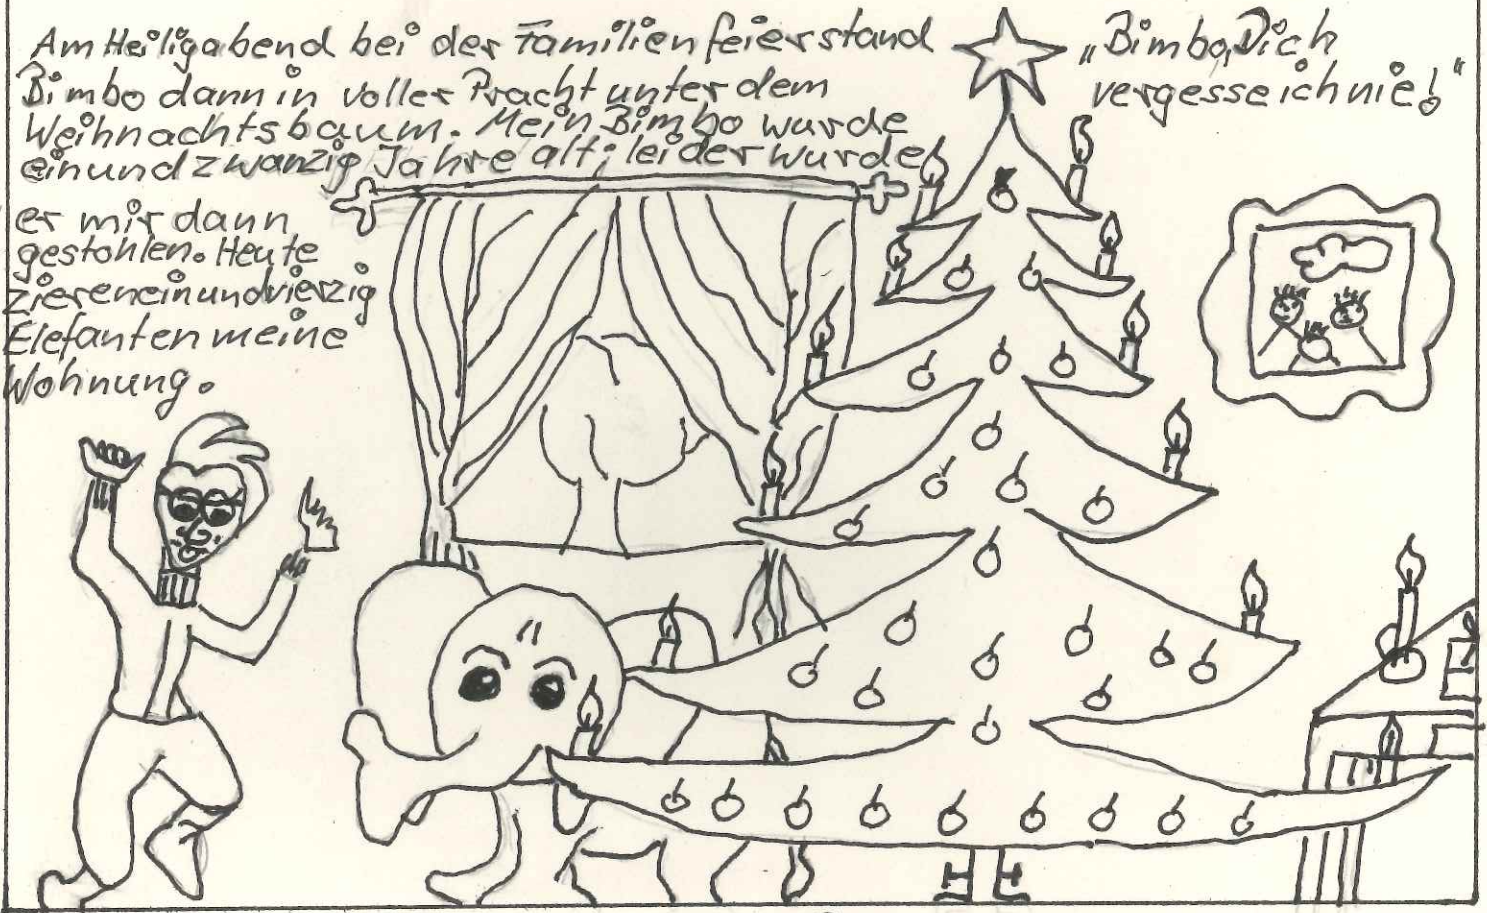 Am Heiligabend bei der Familienfeier stand
Bimbo dann in voller Pracht unter dem
Weihnachtsbaum. Mein Bimbo wurde
einundzwanzig Jahre alt; leider wurde
er mir dann
gestohlen. Heute
zieren einundvierzig
Elefanten meine
Wohnung.
„Bimbo, Dich
vergesse ich nie!“